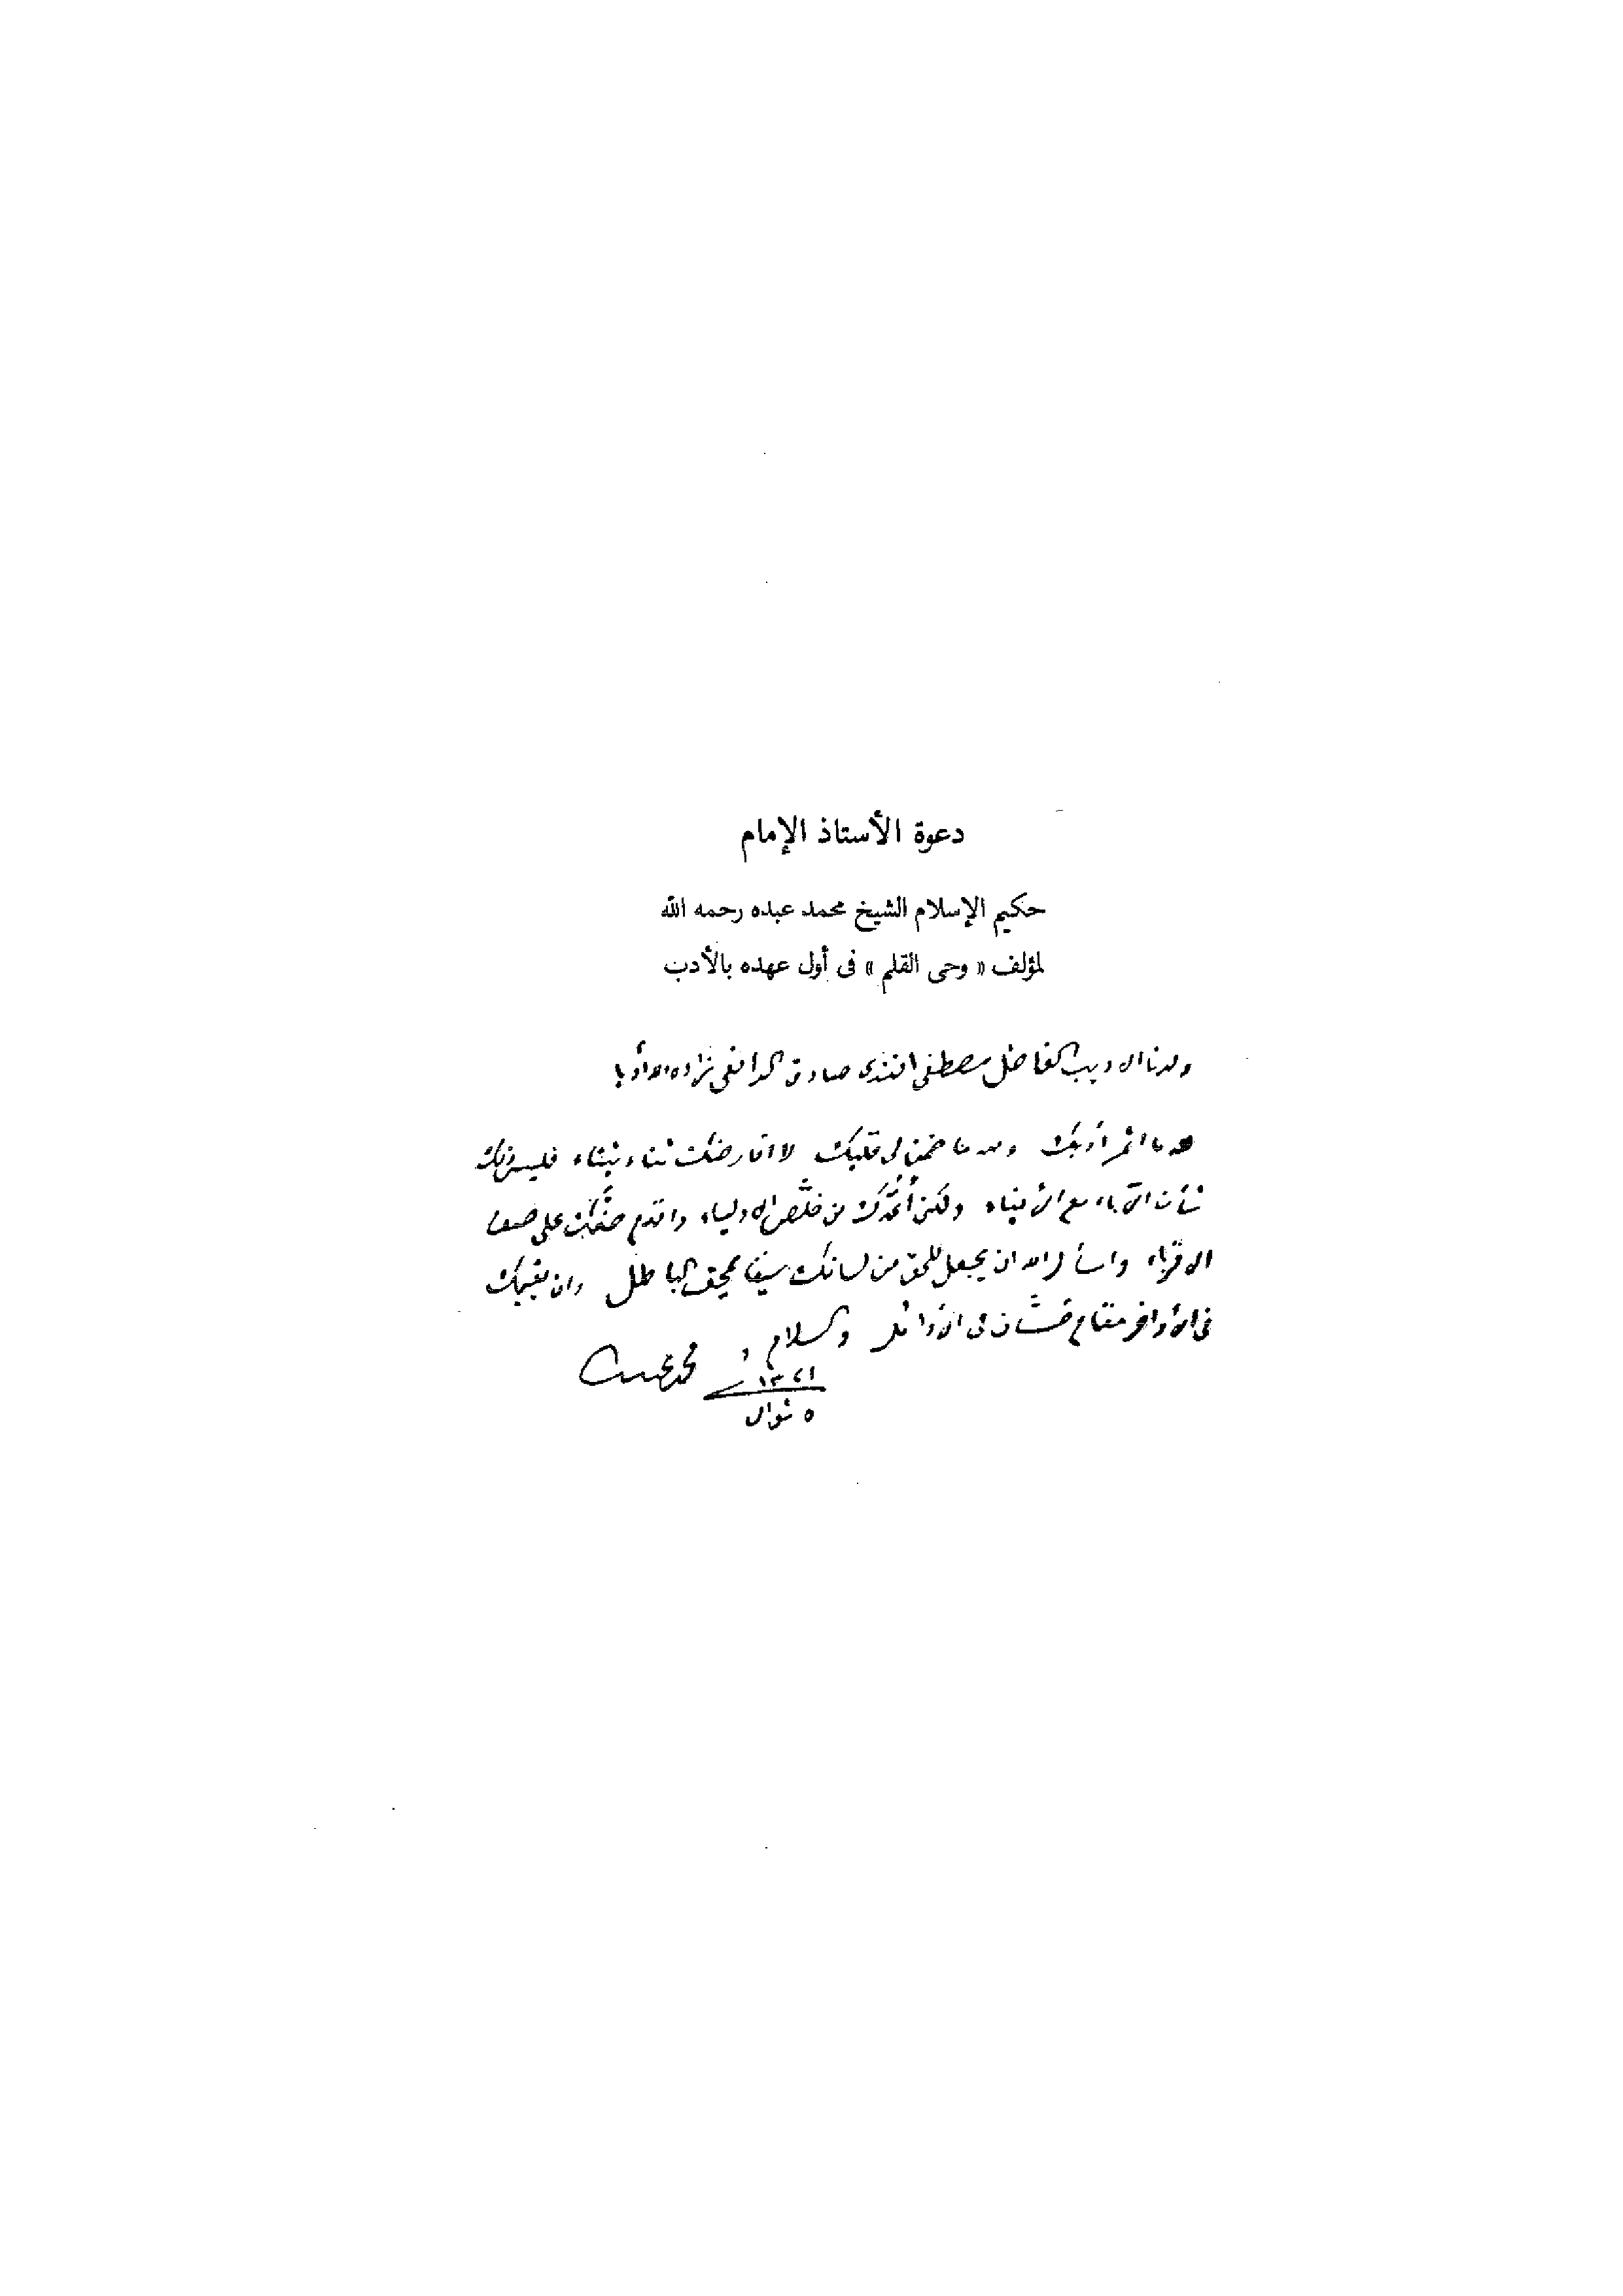 دعوة الأستاذ الإمام
حكيم الإسلام الشيخ محمد عبده رحمه الله
لمؤلف « وحى القلم » فى أول عهده بالأدب
ولدنا الأديب الفاضل مصطفى افندى صادق الرافعى زاده الله أدبا
لله ما اثمر أدبك ولله ما ضمن لى قلبك لا اقارضك ثناء بثناء فليس ذلك
شأن الآباء مع الأبناء ولكنى أعُدُّك من خلَّص الأولياء واقدم صفَّك على صف
الاقرباء واسأل الله ان يجعل للحق من لسانك سيفا يمحق الباطل وان يقيمك
فى الأواخر مقام حسَّان فى الأوائل والسلام
٥ شوال ١٣٢١ محمد عبده